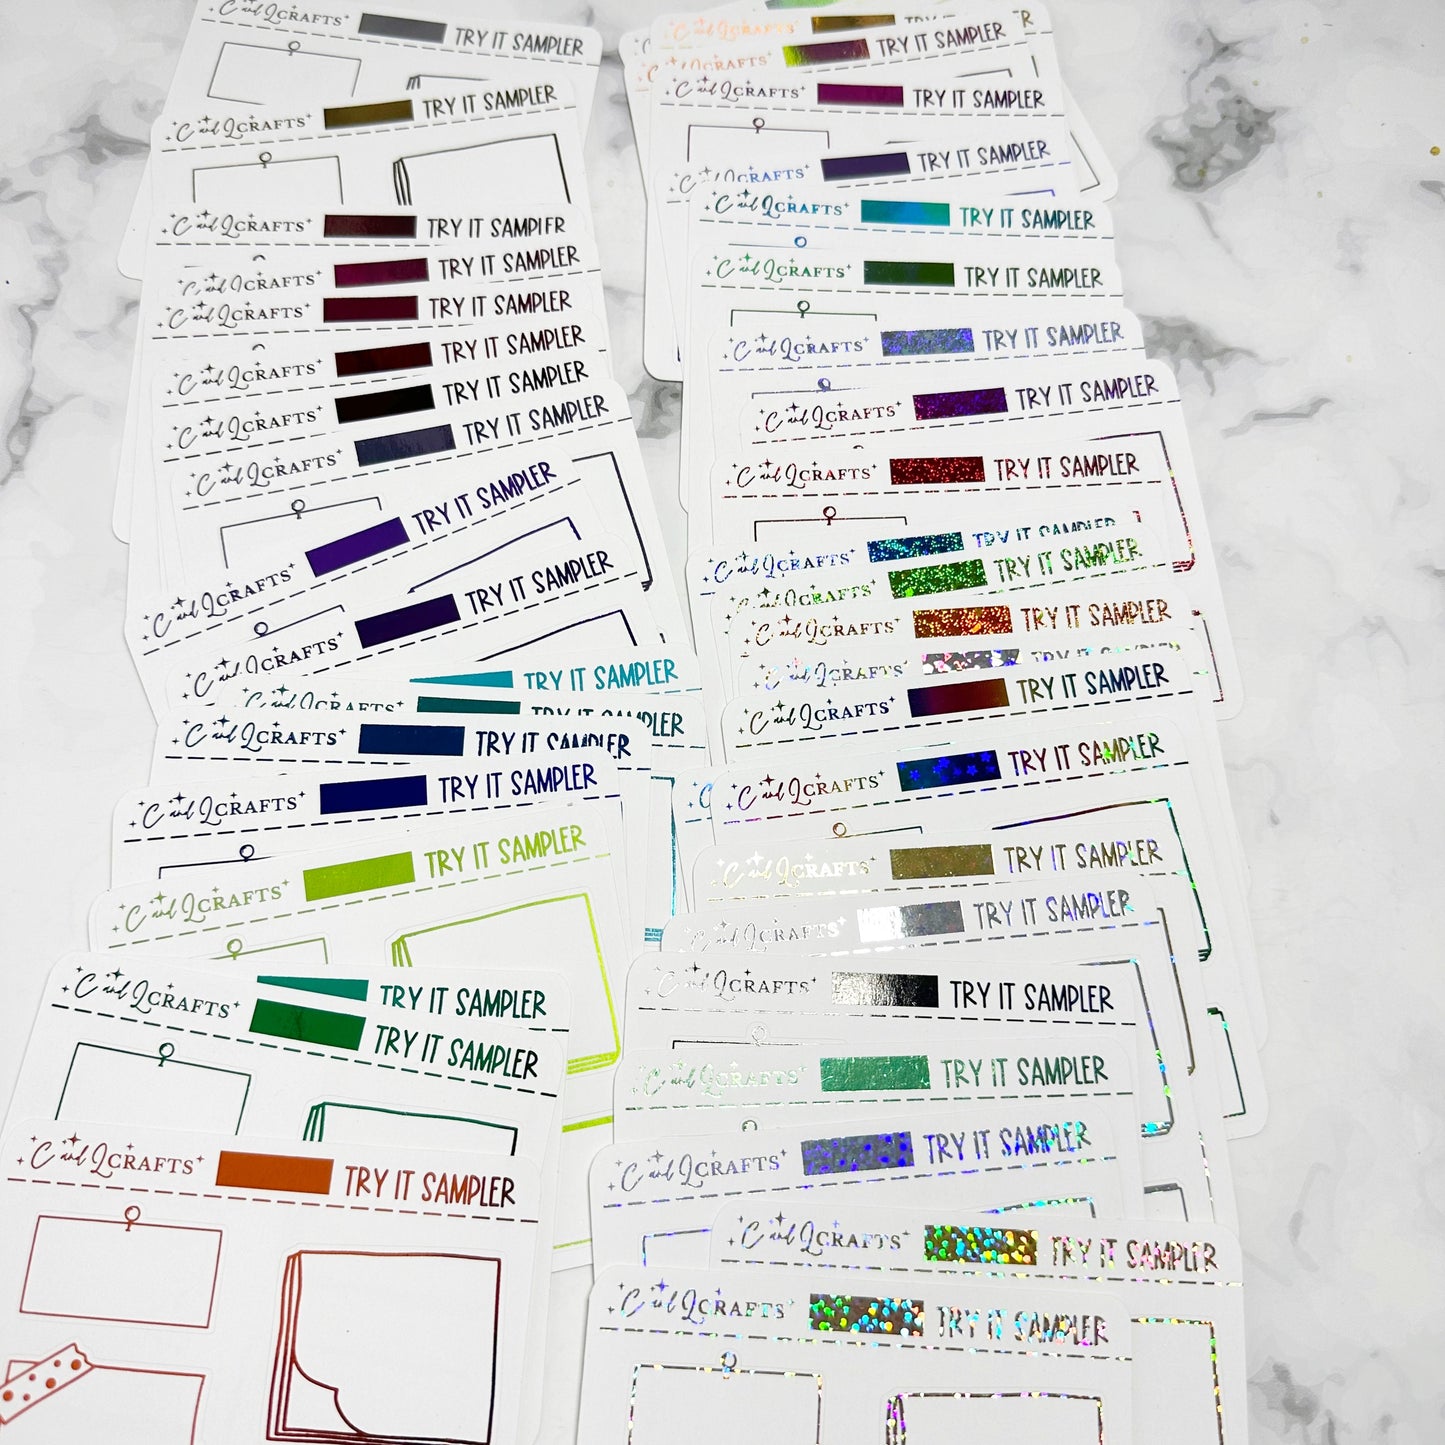 C and L CRAFTS TRY IT SAMPLER
C and L CRAFTS TRY IT SAMPLER
C and L CRAFTS TRY IT SAMPLER
C and L CRAFTS TRY IT SAMPLER
C and L CRAFTS TRY IT SAMPLER
C and L CRAFTS TRY IT SAMPLER
C and L CRAFTS TRY IT SAMPLER
C and L CRAFTS TRY IT SAMPLER
C and L CRAFTS TRY IT SAMPLER
C and L CRAFTS TRY IT SAMPLER
TRY IT SAMPLER
C and L CRAFTS
C and L CRAFTS TRY IT SAMPLER
C and L CRAFTS TRY IT SAMPLER
C and L CRAFTS TRY IT SAMPLER
C and L CRAFTS TRY IT SAMPLER
TRY IT SAMPLER
C and L CRAFTS TRY IT SAMPLER
C and L CRAFTS
CRAFTS TRY IT SAMPLER
C and L CRAFTS TRY IT SAMPLER
C and L CRAFTS TRY IT SAMPLER
C and L CRAFTS TRY IT SAMPLER
C and L CRAFTS TRY IT SAMPLER
C and L CRAFTS TRY IT SAMPLER
C and L CRAFTS TRY IT SAMPLER
C and L CRAFTS TRY IT SAMPLER
C and L CRAFTS TRY IT SAMPLER
C and L CRAFTS TRY IT SAMPLER
C and L CRAFTS TRY IT SAMPLER
C and L CRAFTS
C and L CRAFTS TRY IT SAMPLER
C and L CRAFTS TRY IT SAMPLER
C and L CRAFTS TRY IT SAMPLER
C and L CRAFTS TRY IT SAMPLER
C and L CRAFTS TRY IT SAMPLER
C and L CRAFTS TRY IT SAMPLER
C and L CRAFTS TRY IT SAMPLER
C and L CRAFTS TRY IT SAMPLER
C and L CRAFTS TRY IT SAMPLER